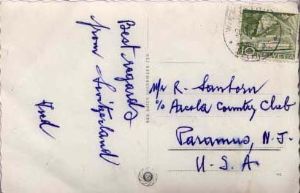 Best regards
from Switzerland
Fred
R. Sanborn
c/o Arcola Country Club
Paramus, N.J.
U.S.A
10
HELVETIA